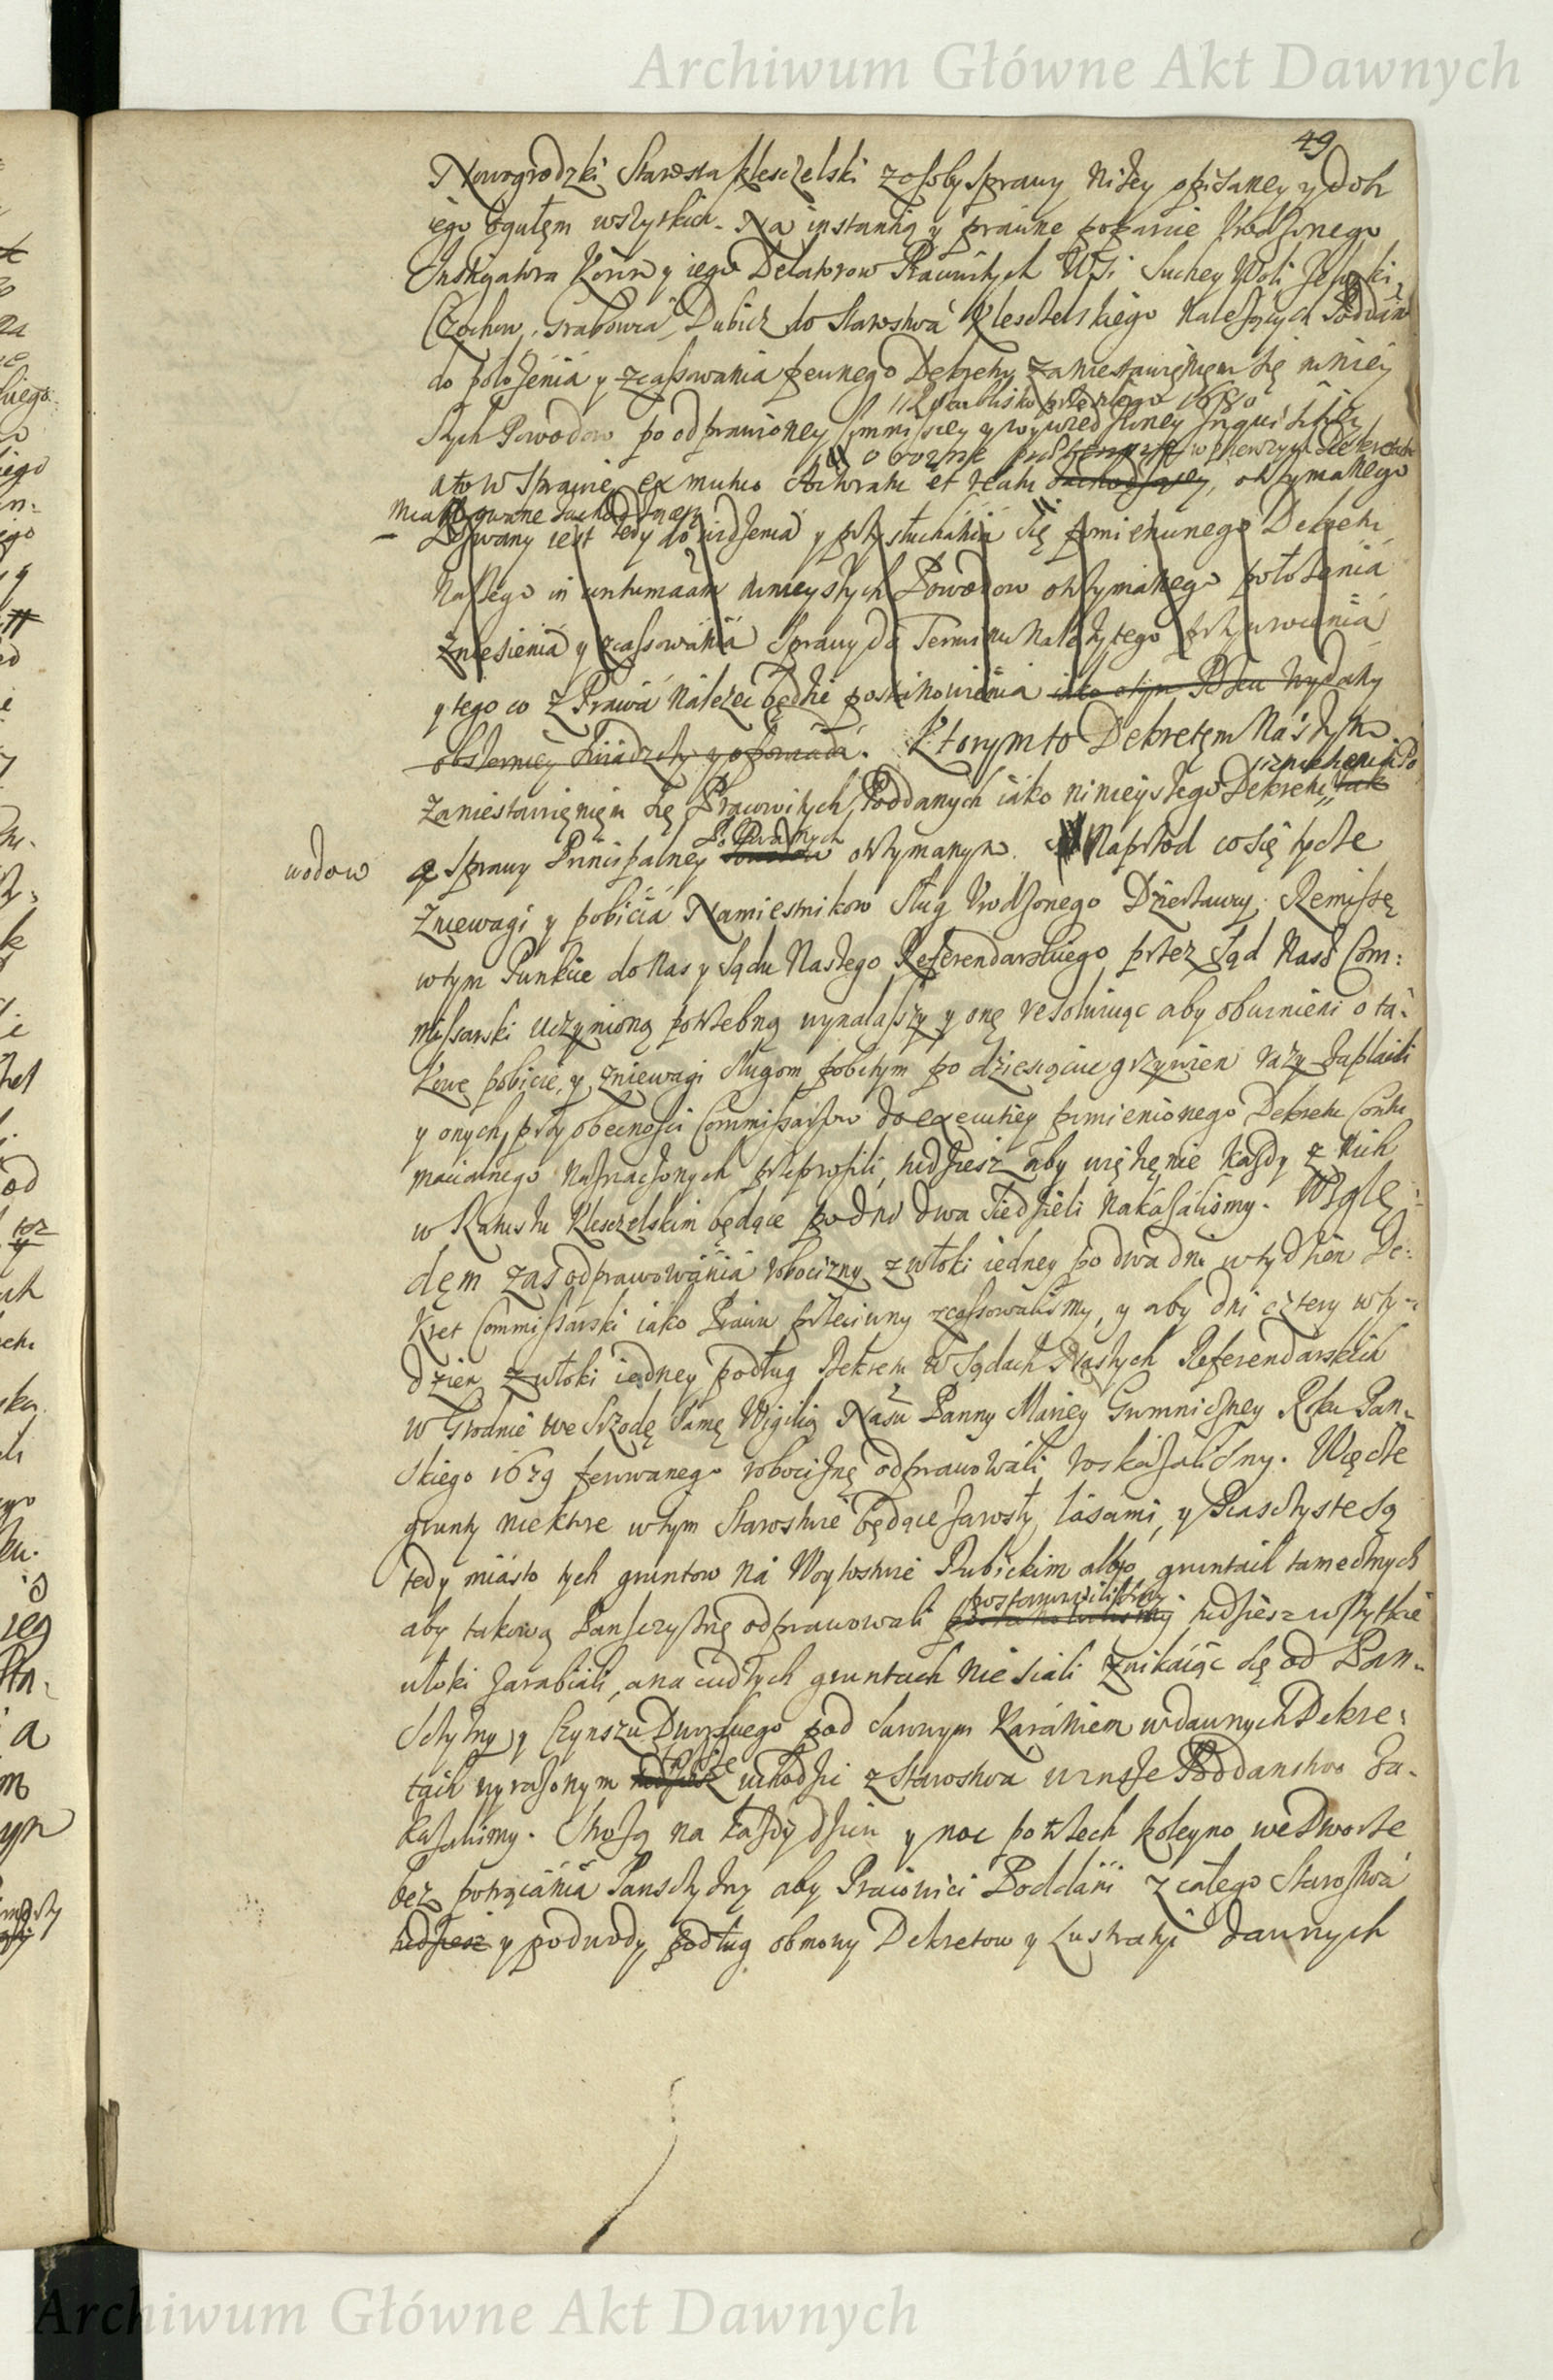 Archiwum Główne Akt Dawnych
49
Nowogrodzki Starosta Klesczelski z osoby sprawy niżey opisaney y dobr
iego ogułęm wszytkich. Na instantią y prawne poparcie Urodzonego
Instigatora Koron y iego Delatorow Pracowitych Wsi Suchey Woli
Czochow, Grabowca, Dubicz do Starostwa Klesczelskiego należących Poddan
do położęnia y zcassowania pewnego Dekretu za niestawięnięm się niniey
szych Powodow po odprawioney Commissiey y wywiedzioney Inquisitiey
w pierwszym Dekrecie
a to w sprawie ex mutuo Actoratu et reatu zachodzącey, otrzymanego
Pozwany iest tedy do widzenia y przysłuchania się pomienionego Dekretu
Naszego in contumaciam ninieyszych Powodow otrzymanego położęnia
zniesienia y zcassowania sprawy do Terminu należytego przywrocęnia
y tego co z Prawa należeć będzie postanowienia iako o tym Pozew wydany
obszerniey świadczy y opowiada. Ktorym to Dekretęm Naszym
za niestawięnięm się Pracowitych Poddanych iako ninieyszego Dekretu tak
wodow
y sprawy Principalney Pozwanych otrzymanym. Naprzod co się tycze
zniewagi y pobicia Namiestnikow sług Urodzonego Dzierżawcy, Remissę
w tym Punkcie do Nas y Sądu Naszego Referendarskiego przez Sąd Nasz Com:
missarski uczynioną potrzebną wynalaszszy y onę resolwuiąc aby obwinieni o ta:
kowe pobicie y zniewagi sługom pobitym po dziesiąciu grzywien razy zapłacili
y onych przy obecności Commissarzow do executiey pomienionego Dekretu Contu
macialnego naznaczonych przeprosili, tudziesz aby więzięnie każdy z nich
w Ratuszu Klesczelskim będące po dni dwa siedzieli nakazalismy. Wzglę:
dęm zaś odprawowania robocizny z włoki iedney po dwa dni w tydzien De:
kret Commissarski iako Prawu przeciwny zcassowalismy, y aby dni cztery w ty:
dzien z włoki iedney podług Dekretu w Sądach Naszych Referendarskich
w Grodnie we Srzodę samę Wigilią Panny Mariey Gromniczney Roku Pan:
skiego 1679 ferowanego robociznę odprawowali roskazalismy. Więc że
grunty niektore w tym Starostwie będące zarosły lasami, y Piasczyste są
tedy miasto tych gruntow na Woytostwie Dubickim albo gruntach tamecznych
aby takową Pansczyznę odprawowali postanowilismy tudziesz wszytkie
włoki zarabiali, a na cudzych gruntach nie siali znikaiąc się od Pan:
sczyzny y Czynszu Dworskiego pod surowym karanięm w dawnych Dekre:
tach wyrażonym także uchodzić z Starostwa wrozne Poddanstwo za:
kazalismy. Strożą na każdy dzien y noc po trzech koleyno we Dworze
bez potrącania Pansczyzny aby Pracowici Poddani z całego Starostwa
tudziesz y podwody podług obmowy Dekretow y Lustratyi dawnych
Archiwum Główne Akt Dawnych